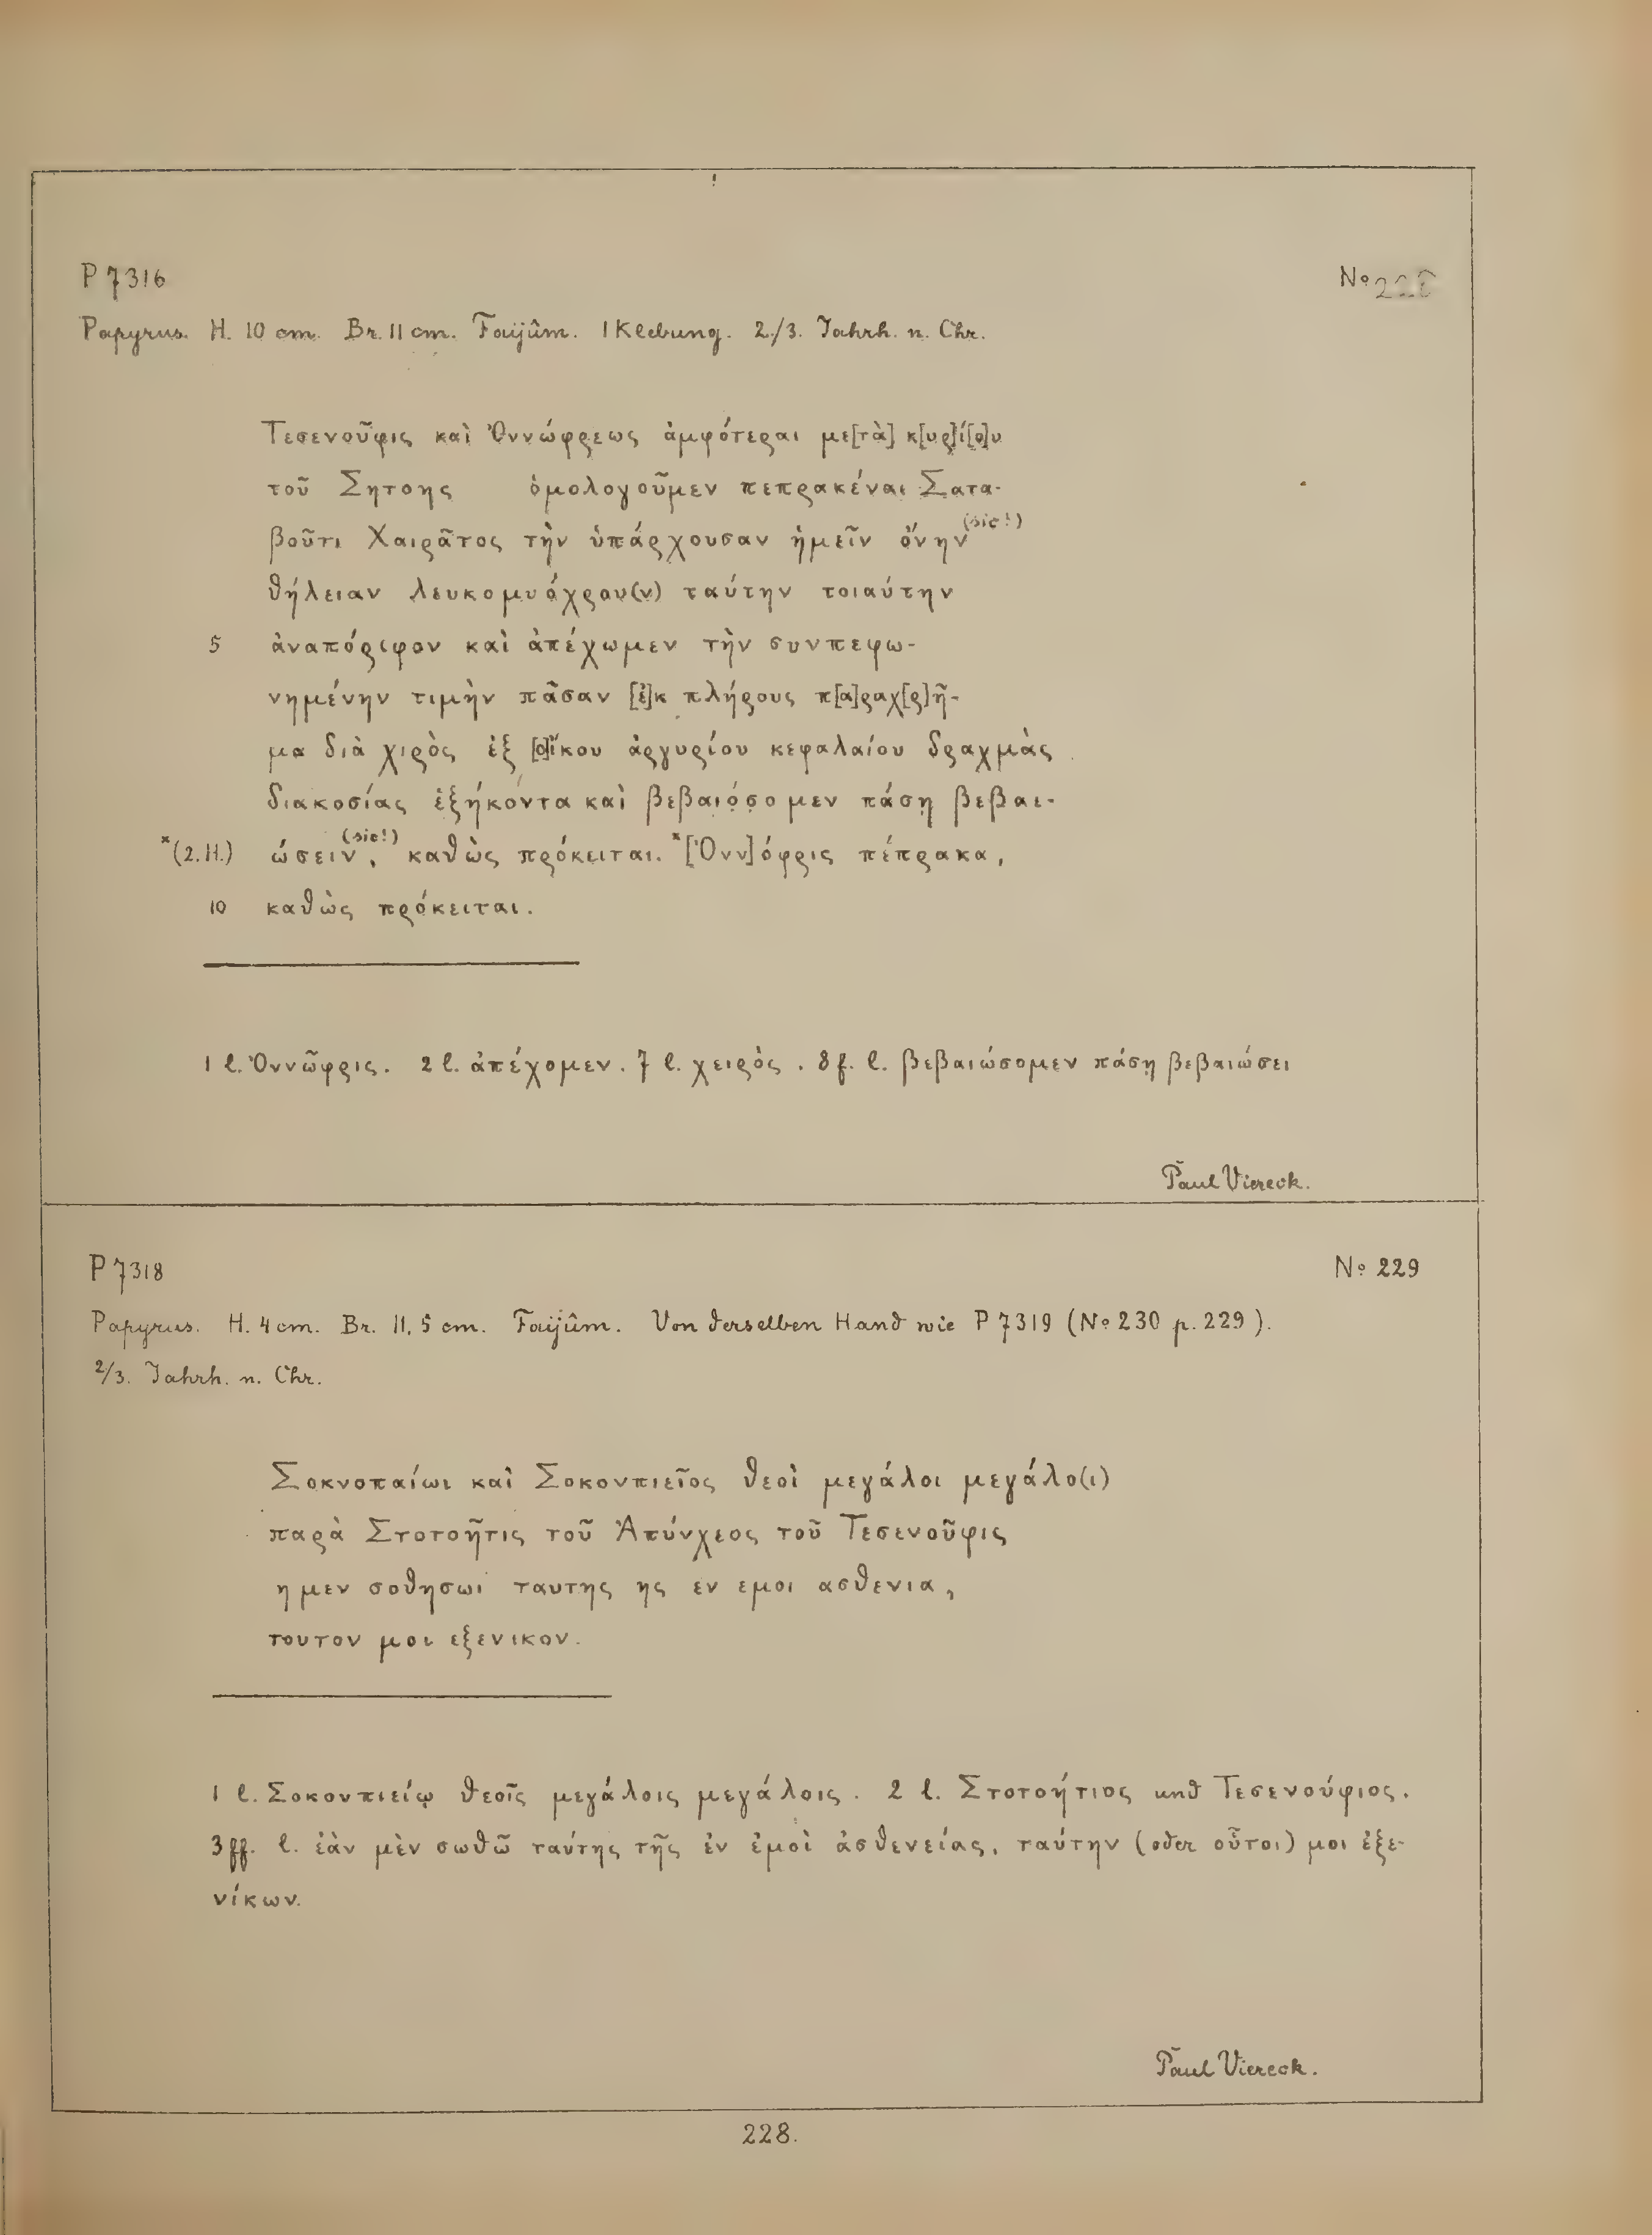 P 7316
No 228
Papyrus. H. 10 cm. Br. 11 cm. Faijûm. 1 Klebung. 2./3. Jahrh. n. Chr.
Τεσενοῦφις καὶ Ὀννώφρεως ἀμφότεραι με[τὰ] κ[υρ]ί[ο]υ
τοῦ Σητοης ὁμολογοῦμεν πεπρακέναι Σατα-
βοῦτι Χαιρᾶτος τὴν ὑπάρχουσαν ἡμεῖν ὄνην (sic!)
θήλειαν λευκομυόχρου(ν) ταύτην τοιαύτην
5 ἀναπόριφον καὶ ἀπέχωμεν τὴν συνπεφω-
νημένην τιμὴν πᾶσαν [ἐ]κ πλήρους π[α]ραχ[ρ]ῆ-
μα διὰ χιρὸς ἐξ [ο]ἴκου ἀργυρίου κεφαλαίου δραχμὰς
διακοσίας ἑξήκοντα καὶ βεβαιόσομεν πάσῃ βεβαι-
*(2. H.) ώσειν (sic!), καθὼς πρόκειται. *[Ὀνν]όφρις πέπρακα,
10 καθὼς πρόκειται.
1 l. Ὀννῶφρις. 2 l. ἀπέχομεν. 7 l. χειρὸς. 8 f. l. βεβαιώσομεν πάσῃ βεβαιώσει
Paul Viereck.
P 7318
No 229
Papyrus. H. 4 cm. Br. 11,5 cm. Faijûm. Von derselben Hand wie P 7319 (No 230 p. 229).
2/3. Jahrh. n. Chr.
Σοκνοπαίωι καὶ Σοκονπιεῖος θεοὶ μεγάλοι μεγάλο(ι)
παρὰ Στοτοῆτις τοῦ Ἀπύνχεος τοῦ Τεσενοῦφις
η μεν σοθησωι ταυτης ης εν εμοι ασθενια,
τουτον μοι εξενικον.
1 l. Σοκονπιείῳ θεοῖς μεγάλοις μεγάλοις. 2 l. Στοτοήτιος und Τεσενούφιος.
3 ff. l. ἐὰν μὲν σωθῶ ταύτης τῆς ἐν ἐμοὶ ἀσθενείας, ταύτην (oder οὗτοι) μοι ἐξε-
νίκων.
Paul Viereck.
228.